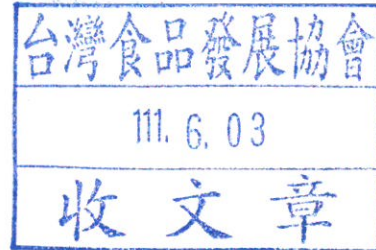 台灣食品發展協會
111. 6. 03
收文章